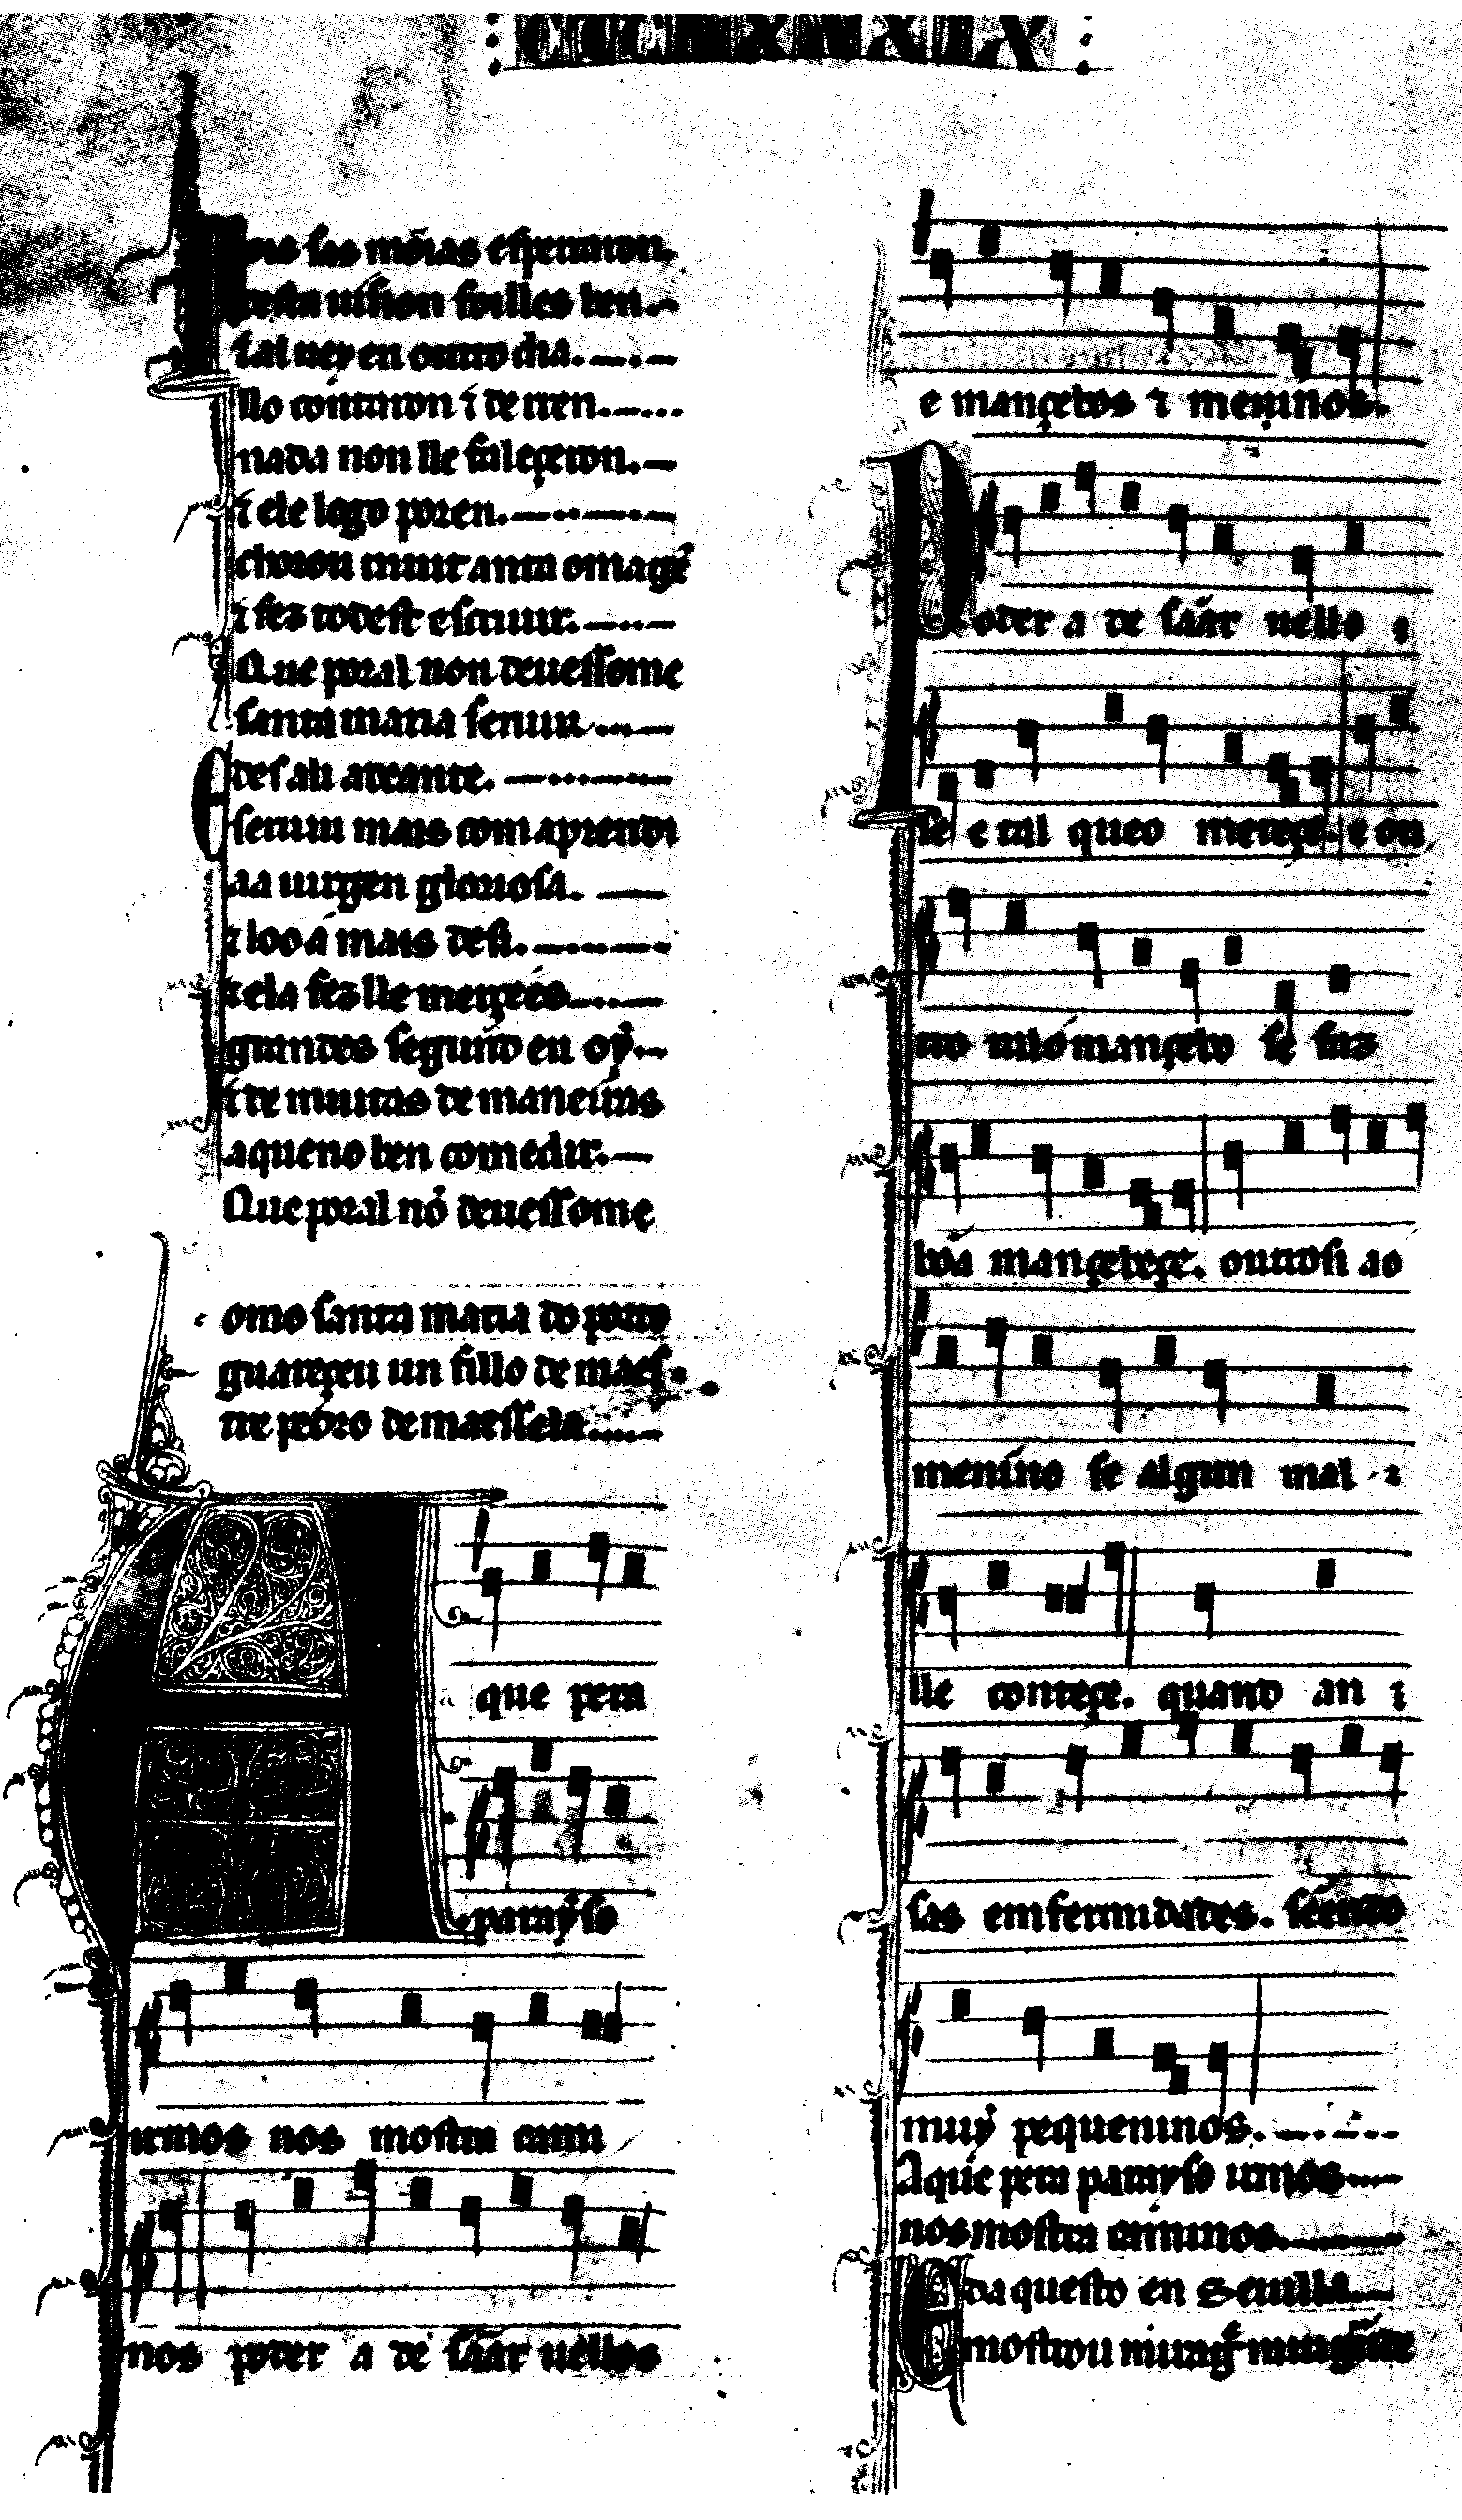 :CCCLXXXIX:
pois las mõjas espertaron.
desta uision foilles ben.
tal rey en outro dia.
llo contaron ⁊ de rren.
nada non lle faleçeron.
⁊ ele logo poren.
chorou muit anta omagẽ
⁊ fez todest escriuir.
Que poral non deuessome
santa maria seruir
E des ali adeante.
seruiu mais com aprendi
aa uirgen gloriosa.
⁊ looa mais desi.
⁊ ela fezlle merçees
grandes segundo en oy̆
⁊ de muitas de maneiras
aqueno ben comedir.
Que poral nõ deuessome
omo santa maria do porto
guareçeu un fillo de maes
tre pedro de marssela
A que pera
parayso
irmos nos mostra cami
nos poder a de sãar uellos
e mançebos ⁊ meninos.
Poder a de sãar uello ⁊
se e tal queo mereçe. e ou
tro niló mançebo se faz
bõa mançebeçe. outrosi ao
menino se algun mal ⁊
lle conteçe. quand an ⁊
sas enfermidades. sẽendo
muy pequeninos.
A que pera parayso irmos
nos mostra caminos
E daquesto en Seuilla
mostrou miragr̃ mui grãde